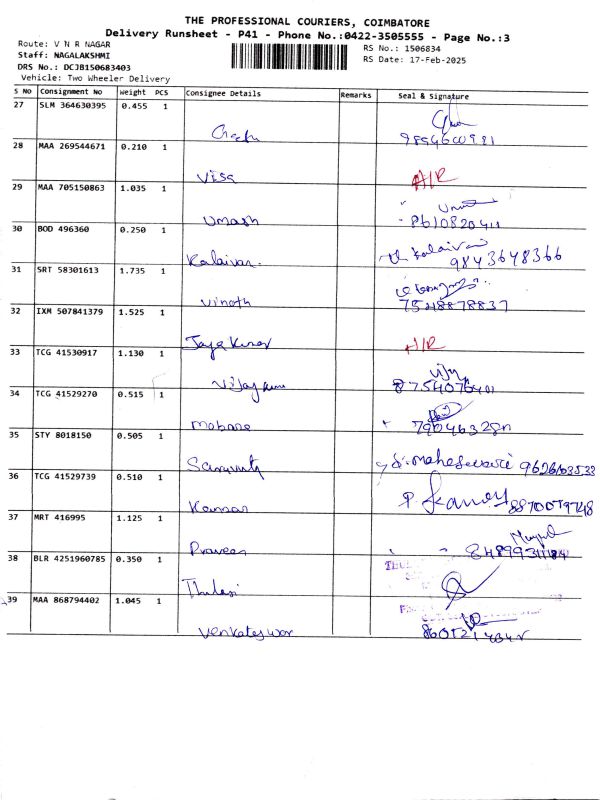 THE PROFESSIONAL COURIERS, COIMBATORE
Delivery Runsheet - P41 - Phone No.:0422-3505555 - Page No.:3
Route: V N R NAGAR
RS No.: 1506834
Staff: NAGALAKSHMI
RS Date: 17-Feb-2025
DRS No.: DCJB150683403
Vehicle: Two Wheeler Delivery
S No Consignment No Weight PCS Consignee Details Remarks Seal & Signature
27 SLM 364630395 0.455 1
28 MAA 269544671 0.210 1
Visa A/R
29 MAA 705150863 1.035 1
Umash 8610820411
30 BOD 496360 0.250 1
Kalaivan. Kalaivani
9843648366
31 SRT 58301613 1.735 1
Vinoth 7548878837
32 IXM 507841379 1.525 1
Jaya Kumar A/R
33 TCG 41530917 1.130 1
Vijay Kumar 8754076401
34 TCG 41529270 0.515 1
35 STY 8018150 0.505 1
S. Maheswari
36 TCG 41529739 0.510 1
Kannan
37 MRT 416995 1.125 1
Praveen
38 BLR 4251960785 0.350 1
Thulasi
39 MAA 868794402 1.045 1
Venkateswar